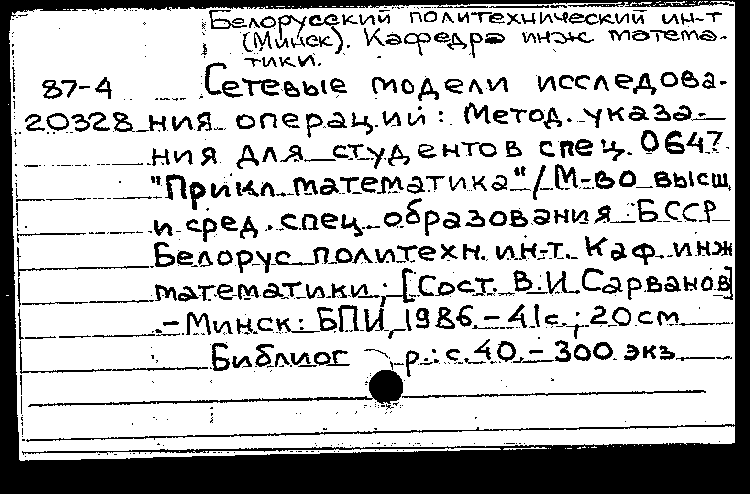 Белорусский политехнический ин-т
(Минск). Кафедра инж. матема-
тики.
87-4 Сетевые модели исследова-
20328 ния операций: Метод. указа-
ния для студентов спец. 0647
"Прикл. математика" / М-во высш
и сред. спец. образования БССР
Белорус политехн. ин-т. Каф. инж
математики; [Сост. В.И. Сарванов]
.-Минск: БПИ, 1986.-41с.; 20см
Библиог р.: с.40.-300 экз.